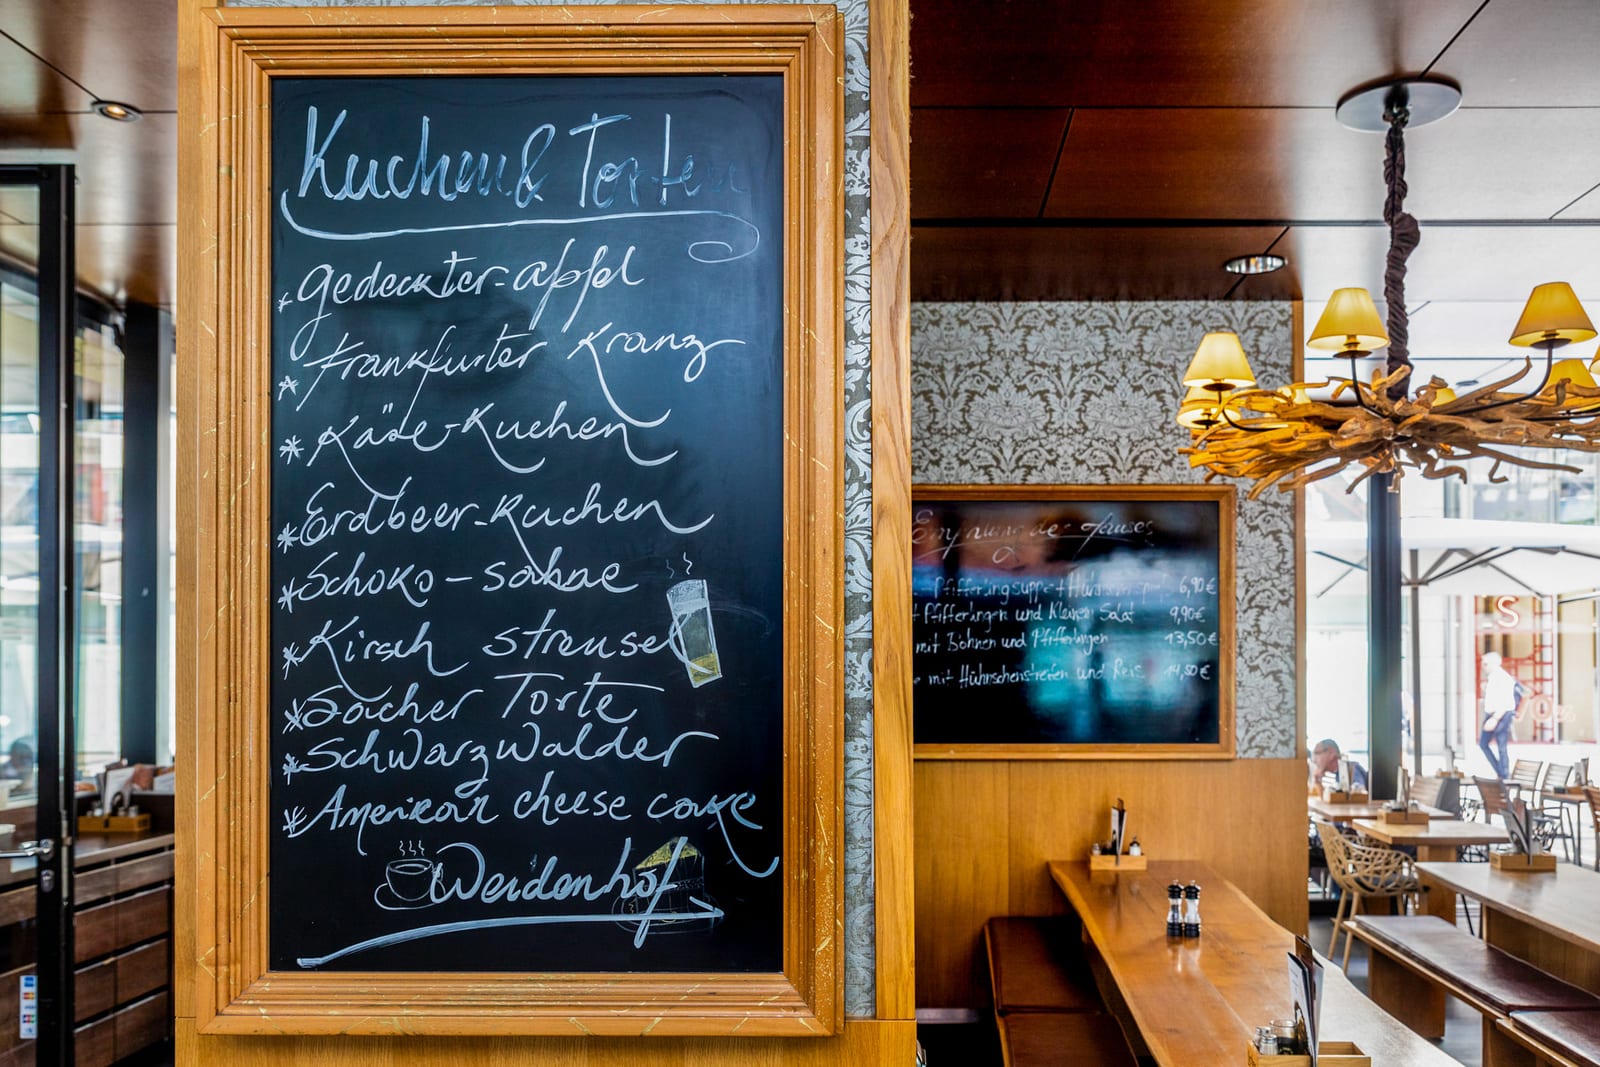 Kuchen & Torten
* gedeckter-apfel
* Frankfurter Kranz
* Käse-Kuchen
* Erdbeer-Kuchen
* Schoko - sahne
* Kirsch streusel
* Sacher Torte
* Schwarzwalder
* American cheese cake
Weidenhof
des Hauses
6,90€
Pfifferlingen und kleinem Salat 9,90€
mit Bohnen und Pfifferlingen 13,50€
mit Hühnchenstreifen und Reis 14,50€
S